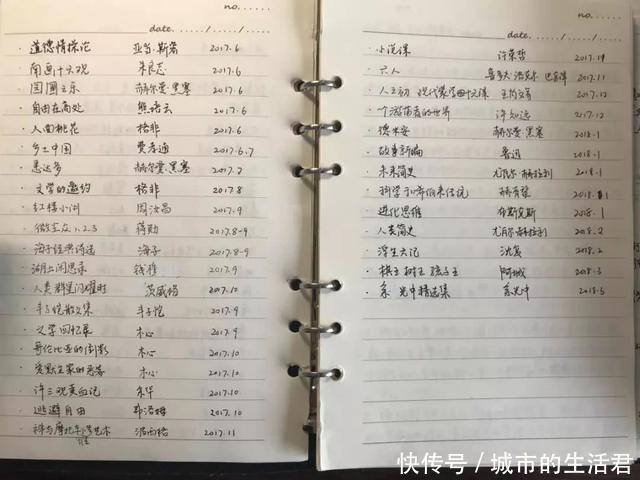 no.
date. / /
· 道德情操论 亚当·斯密 2017.6
· 南画十六观 朱良志 2017.6
· 园圃之乐 赫尔曼·黑塞 2017.6
· 自由在高处 熊培云 2017.6
· 人面桃花 格非 2017.6
· 乡土中国 费孝通 2017.6,7
· 悉达多 赫尔曼·黑塞 2017.7
· 文学的邀约 格非 2017.8
· 红楼小讲 周汝昌 2017.9
1.2.3 蒋勋 2017.8-9
· 海子经典诗选 海子 2017.8-9
· 湖上闲思录 钱穆 2017.9
· 人类群星闪耀时 茨威格 2017.10
· 丰子恺散文集 丰子恺 2017.9
· 文学回忆录 木心 2017.9
· 哥伦比亚的倒影 木心 2017.10
· 爱默生家的恶客 木心 2017.10
· 许三观卖血记 余华 2017.10
· 逃避自由 弗洛姆 2017.10
· 禅与摩托车 艺术 波西格 2017.11
no.
date. / /
· 小说课 许荣哲 2017.11
· 六人 2017.11
· 人之初 现代蒙学四十六课 2017.12
· 一个游荡者的世界 许知远 2017.12
· 德米安 赫尔曼·黑塞 2018.1
· 故事新编 鲁迅 2018.1
· 未来简史 尤瓦尔·赫拉利 2018.1
· 科学 和 2018.1
· 进化思维 2018.1
· 人类简史 尤瓦尔·赫拉利 2018.2
· 浮生六记 沈复 2018.2
· 棋王 树王 孩子王 阿城 2018.3
· 余光中精选集 余光中 2018.3
快传号／城市的生活君